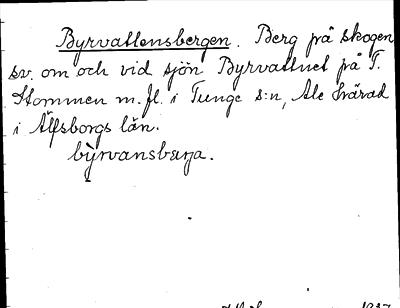 Byrvattensbergen. Berg på skogen
sv. om och vid sjön Byrvattnet på T.
Stommen m.fl. i Tunge s:n, Ale härad
i Älfsborgs län.
by̾rvansbærja.
1927